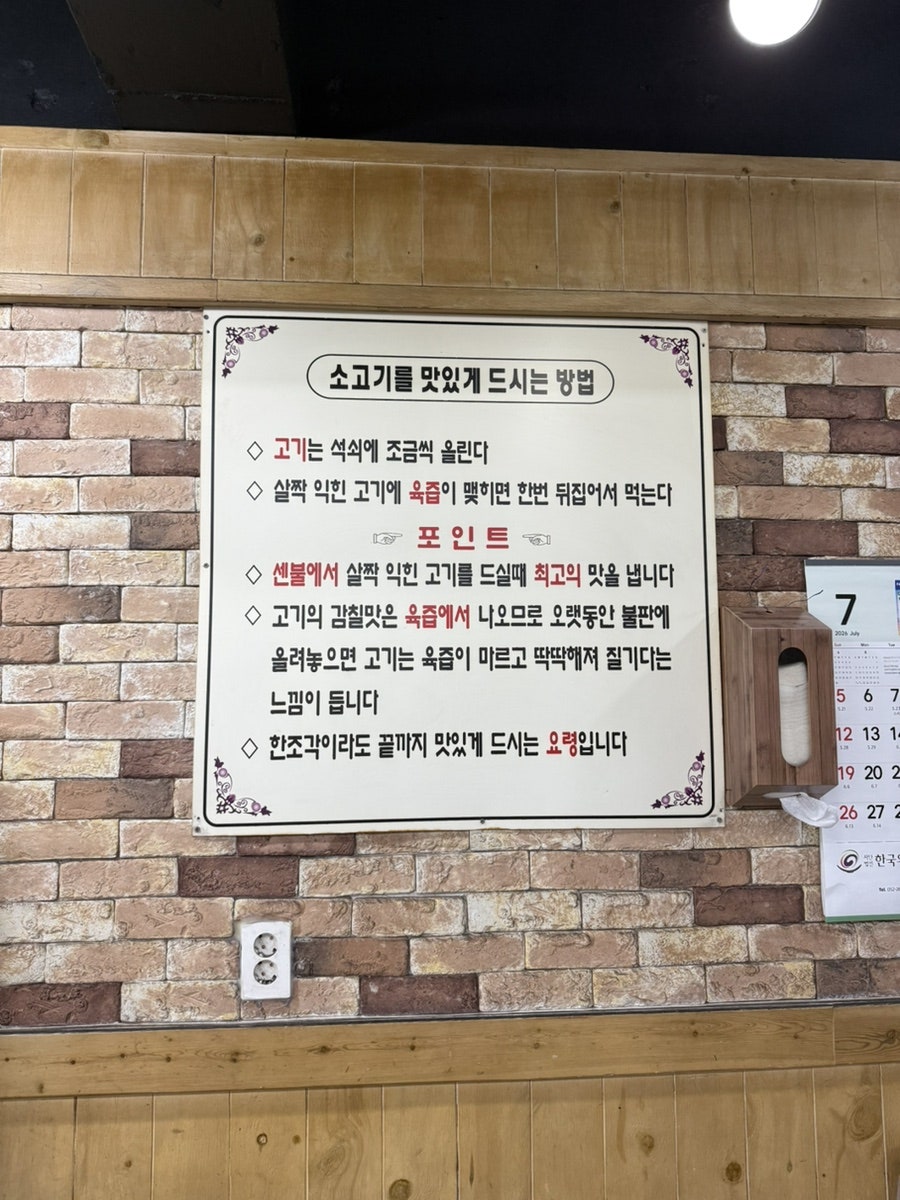 소고기를 맛있게 드시는 방법
◇ 고기는 석쇠에 조금씩 올린다
◇ 살짝 익힌 고기에 육즙이 맺히면 한번 뒤집어서 먹는다
☞ 포인트 ☜
◇ 센불에서 살짝 익힌 고기를 드실때 최고의 맛을 냅니다
◇ 고기의 감칠맛은 육즙에서 나오므로 오랫동안 불판에
올려놓으면 고기는 육즙이 마르고 딱딱해져 질기다는
느낌이 듭니다
◇ 한조각이라도 끝까지 맛있게 드시는 요령입니다
7
2026 July
Sun Mon Tue
5 6 7
12 13
19 20 2
26 27 2
한국